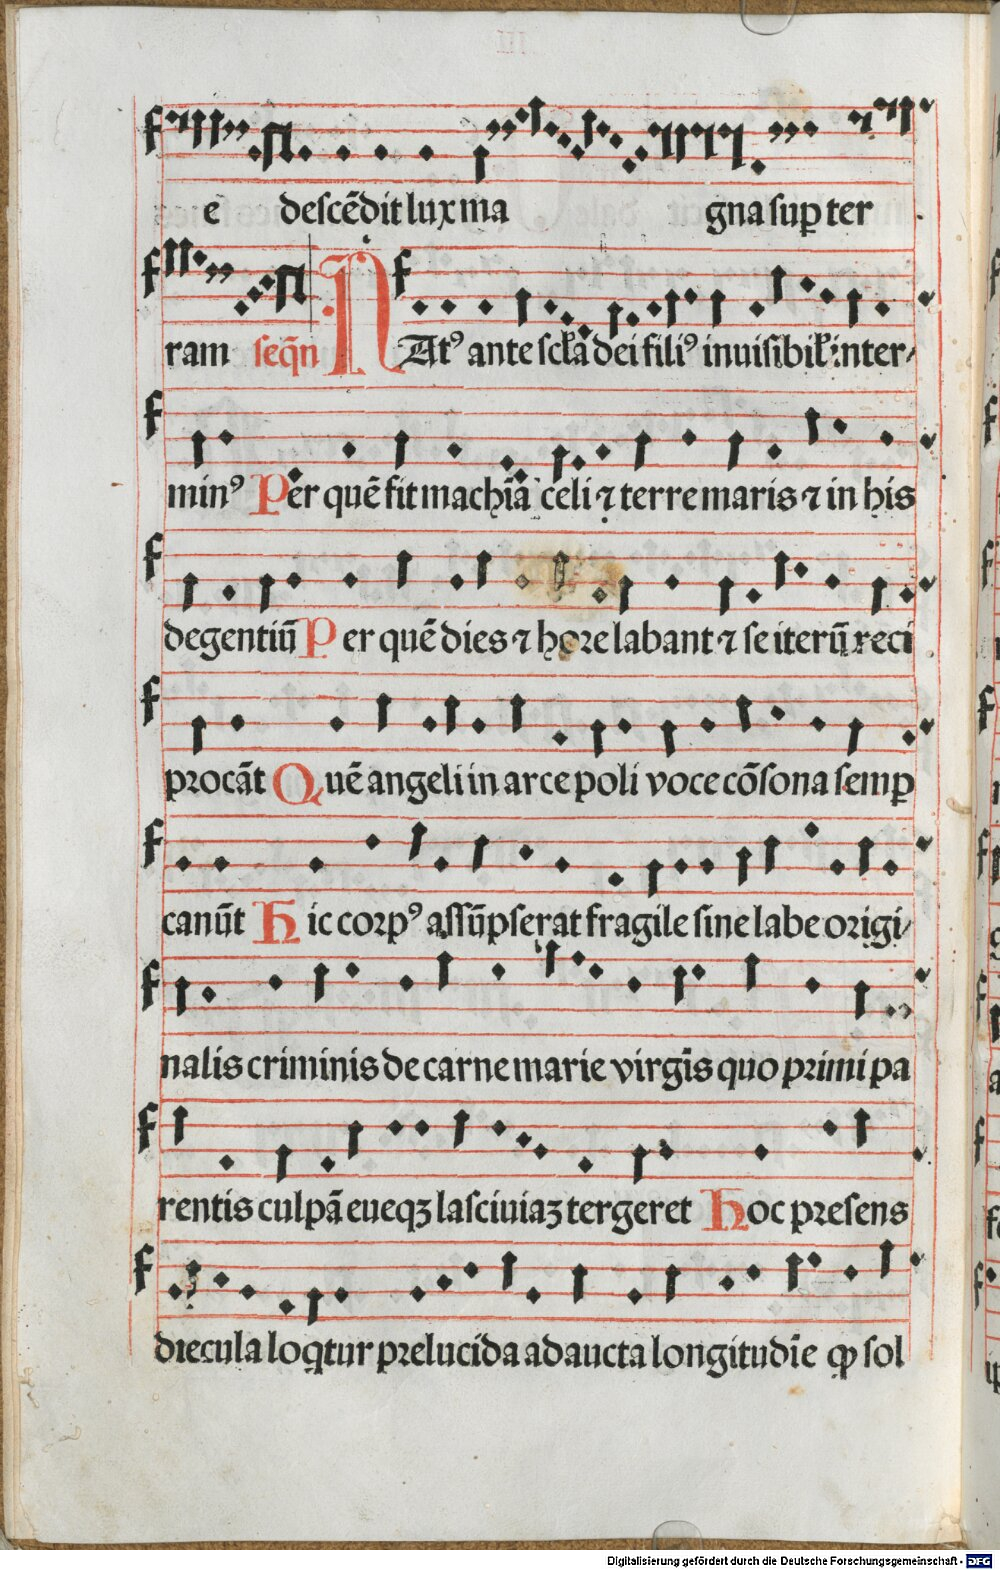 e descēdit lux ma gna suꝑ ter
ram seq̄n NAt⁹ ante scl̄a dei fili⁹ inuisibil' inter⸗
min⁹ Per quē fit machīa celi ⁊ terre maris ⁊ in his
degentiū Per quē dies ⁊ hore labant ⁊ se iterū reci
procāt Quē angeli in arce poli voce cōsona semꝑ
canūt Hic corp⁹ assūpserat fragile sine labe origi⸗
nalis criminis de carne marie virgīs quo primi pa
rentis culpā eueqꝫ lasciuiaꝫ tergeret Hoc presens
diecula loq̄tur prelucida adaucta longitudīe ꝙ sol
Digitalisierung gefördert durch die Deutsche Forschungsgemeinschaft - DFG